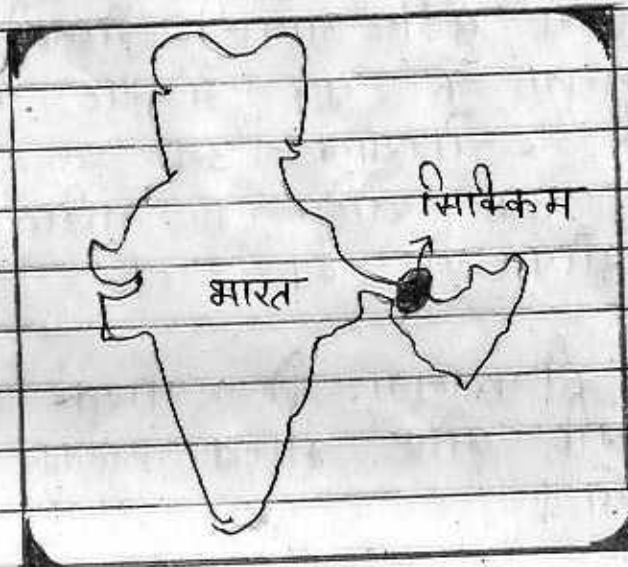 सिक्किम
भारत